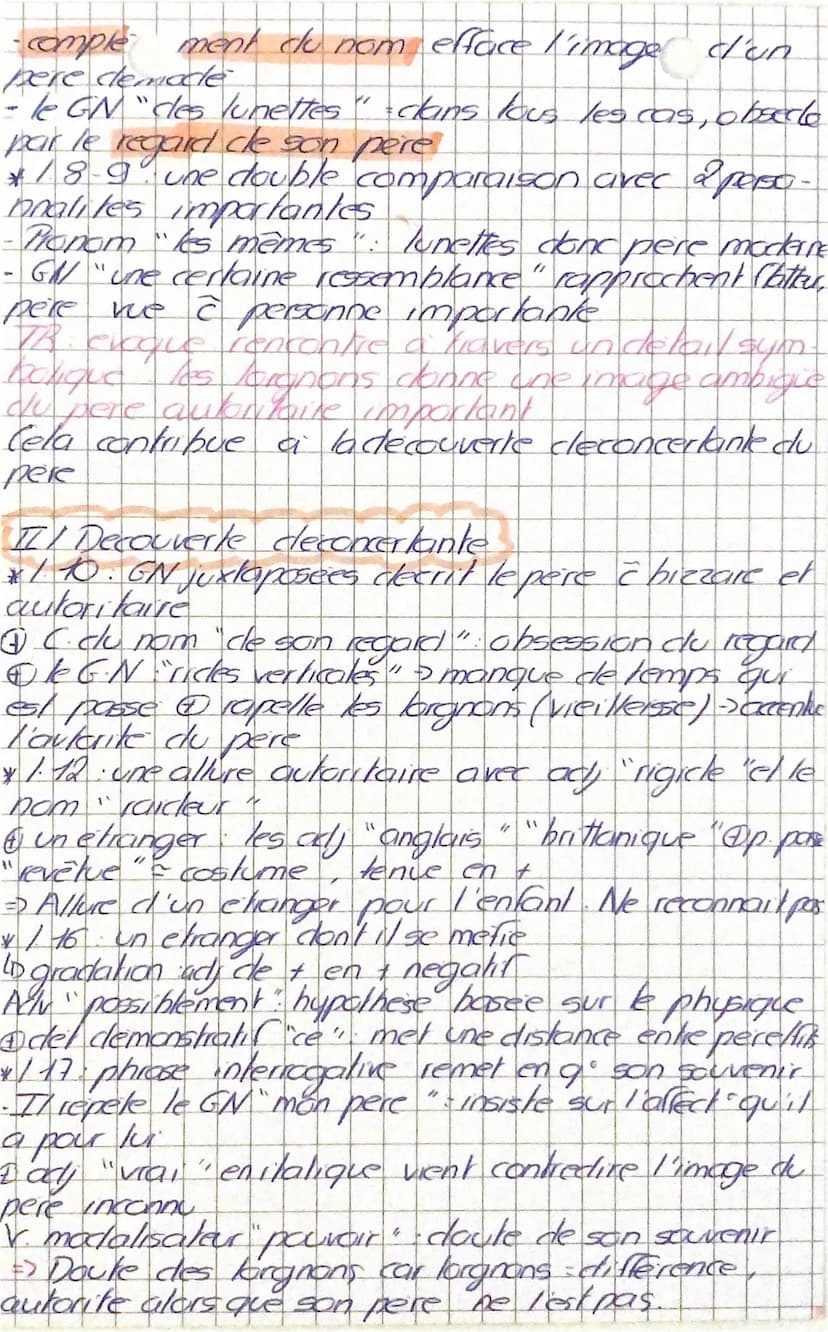 - complé ment du nom, efface l'image d'un
père démodé
- le GN "des lunettes" = dans tous les cas, obsédé
par le regard de son père
* l 8-9 : une double comparaison avec 2 perso-
nnalités importantes
- Pronom "les mêmes" : lunettes donc père moderne
- GN "une certaine ressemblance" rapprochent
père vue c̄ personne importante
TR. évoque rencontre à travers un détail sym-
bolique les lorgnons donne une image ambigüe
du père autoritaire important
Cela contribue à la découverte déconcertante du
père
II / Découverte déconcertante
* l. 10 : GN juxtaposées décrit le père c̄ bizzare et
autoritaire
⊕ C. du nom "de son regard" : obsession du regard
⊕ le G.N "rides verticales" → manque de temps qui
est passé ⊕ rapelle les lorgnons (vieillersse) → accentue
l'autorité du père
* l. 12 : une allure autoritaire avec adj "rigide" et le
nom "raideur"
⊕ un étranger : les adj "anglais" "brittanique" ⊕ p. passé
"revêtue" = costume, tenue en +
=> Allure d'un étranger pour l'enfant. Ne reconnait pas
* l 16 : un étranger dont il se méfie
↳ gradation adj de + en + négatif
Adv "possiblement" : hypothèse basée sur le physique
⊕ det démonstratif "ce" : met une distance entre père/fils
* l 17 : phrase interrogative remet en q° son souvenir
- Il répète le GN "mon père" : insiste sur l'affect° qu'il
a pour lui
adj "vrai" en italique vient contredire l'image du
père inconnu
V. modalisateur "pouvoir" : doute de son souvenir
=> Doute des lorgnons car lorgnons = différence,
autorité alors que son père ne l'est pas.